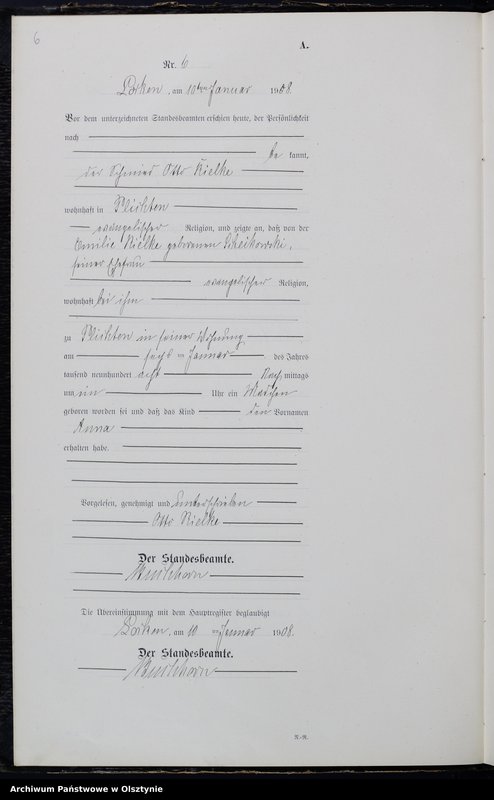 6
A.
Nr. 6
Lorken, am 10ten Januar 1908.
Vor dem unterzeichneten Standesbeamten erschien heute, der Persönlichkeit
nach
be kannt,
der Schmied Otto Kielke
wohnhaft in Plichten
evangelischer Religion, und zeigte an, daß von der
Emilie Kielke geborenen
seiner Ehefrau
evangelischer Religion,
wohnhaft bei ihm
zu Plichten in seiner Wohnung
am sechsten Januar des Jahres
tausend neunhundert acht Nach mittags
um ein Uhr ein Mädchen
geboren worden sei und daß das Kind den Vornamen
Anna
erhalten habe.
Vorgelesen, genehmigt und unterschrieben
Otto Kielke
Der Standesbeamte.
Die Übereinstimmung mit dem Hauptregister beglaubigt
Lorken, am 10 ten Januar 1908.
Der Standesbeamte.
N.-R.
Archiwum Państwowe w Olsztynie